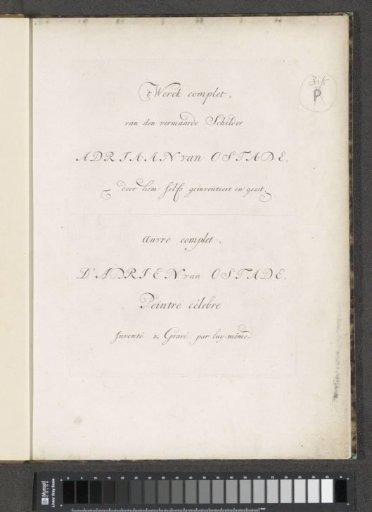 't Werck complet,
van den vermaarde Schilder
ADRIAAN van OSTADE,
door hem selfs geinventeert en geëtst
Œuvre complet,
D'ADRIEN van OSTADE,
Peintre célebre
Inventé & Gravé par luy-même
P